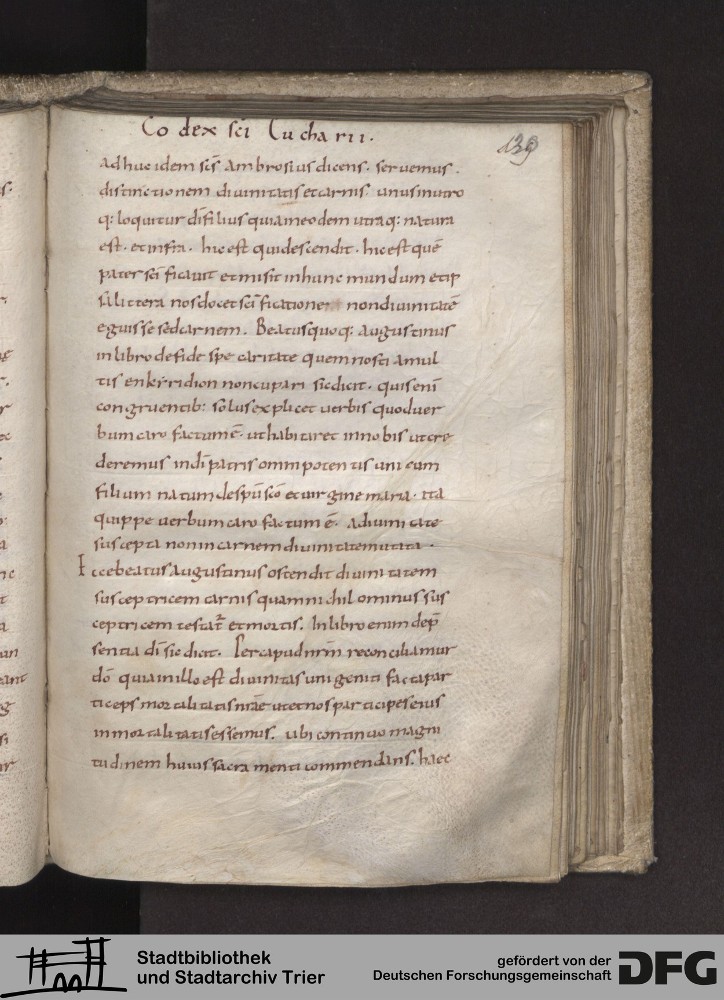 Codex sc̄i Eucharii.
139
adhuc idem sc̄s ambrosius dicens. seruemus.
distinctionem diuinitatis et carnis. unus in utro
q: loquitur dī filius quia in eodem utraq: natura
est. et infra. hic est qui descendit. hic est quē
pater sc̄ificauit et misit in hunc mundum et ip
sa littera nos docet sc̄ificatione non diuinitatē
eguisse sed carnem. Beatus quoq: augustinus
in libro de fide spe caritate quem nosti a mul
tis enkiridion noncupari sic dicit. quis enī
congruentib: solus explicet uerbis quod uer
bum caro factum ē. ut habitaret in nobis ut cre
deremus in dī patris omnipotentis unicum
filium natum de spū sc̄o et uirgine maria. ita
quippe uerbum caro factum ē. a diuinitate
suscepta non in carnem diuinitate mutata.
Ecce beatus augustinus ostendit diuinitatem
susceptricem carnis quam nihilominus sus
ceptricem testat̄ et mortis. In libro enim de p̄
sentia dī sic dicit. Per caput nr̄m reconciliamur
dō quia in illo est diuinitas unigeniti facta par
ticeps mortalitatis nr̄ae ut et nos participes eius
inmortalitatis essemus. ubi continuo magni
tudinem huius sacramenti commendans. haec
Stadtbibliothek
und Stadtarchiv Trier
gefördert von der
Deutschen Forschungsgemeinschaft
DFG